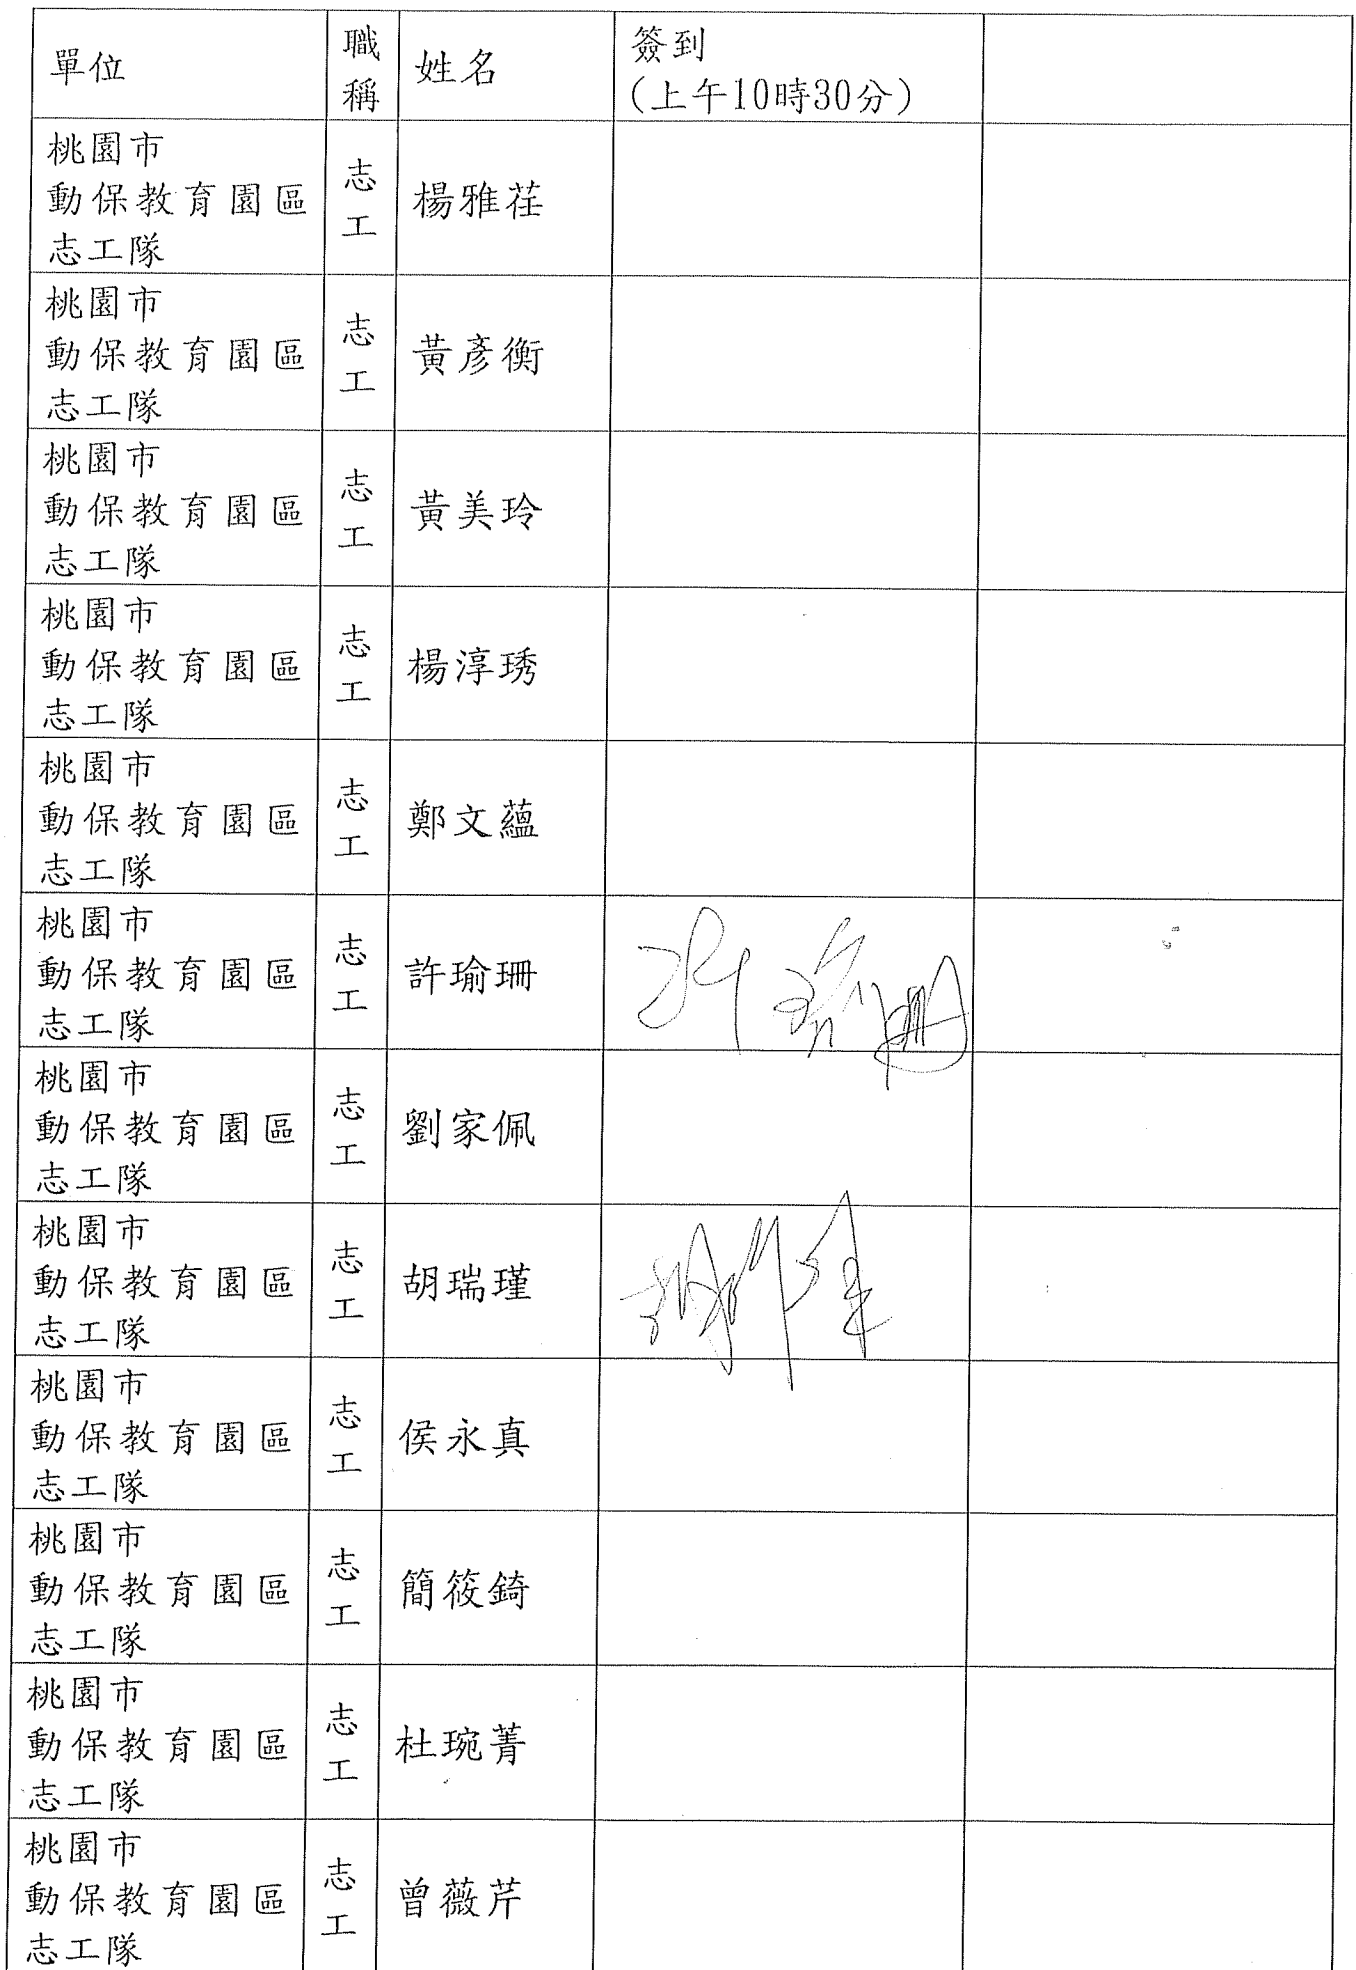 單位 職稱 姓名 簽到
(上午10時30分)
桃園市
動保教育園區
志工隊
志工
楊雅荏
桃園市
動保教育園區
志工隊
志工
黃彥衡
桃園市
動保教育園區
志工隊
志工
黃美玲
桃園市
動保教育園區
志工隊
志工
楊淳琇
桃園市
動保教育園區
志工隊
志工
鄭文蘊
桃園市
動保教育園區
志工隊
志工
許瑜珊
許瑜珊
桃園市
動保教育園區
志工隊
志工
劉家佩
桃園市
動保教育園區
志工隊
志工
胡瑞瑾
胡瑞瑾
桃園市
動保教育園區
志工隊
志工
侯永真
桃園市
動保教育園區
志工隊
志工
簡筱錡
桃園市
動保教育園區
志工隊
志工
杜琬菁
桃園市
動保教育園區
志工隊
志工
曾薇芹